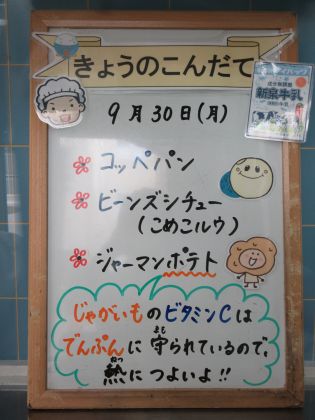 きょうのこんだて
9月30日(月)
コッペパン
ビーンズシチュー
(こめこルウ)
ジャーマンポテト
じゃがいものビタミンCは
でんぷんに守られているので、
熱につよいよ!!
新泉牛乳